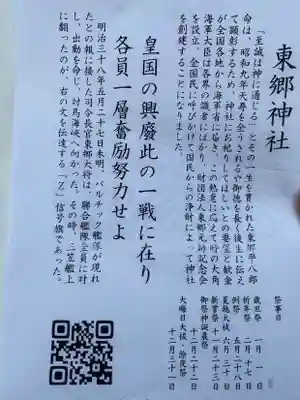 東郷神社
「至誠は神に通じる」とその一生を貫かれた東郷平八郎
命は、昭和九年天寿を全うされるや御徳を長く後生に伝え
て顕彰するため、神社にお祀りしてはしいとの要望と献金
が全国各地から海軍省に届き、この熱意に応えて時の大角
海軍大臣は各界の識者にはかり、財団法人東郷元帥記念会
を設立、全国民に呼びかけて国民からの浄財によって神社
を創建することになりました。
皇国の興廃此の一戦に在り
各員一層奮励努力せよ
明治三十八年五月二十七日未明、バルチック艦隊が現れ
たとの報に接した司令長官東郷大将は、聯合艦隊全員に対
し、出動を命じ、対馬海峡へ向かった。その時、三笠艦上
に翻ったのが、右の文を伝達する「Z」信号旗であった。
祭事日
歳旦祭 一月一日
祈年祭 二月十七日
例祭 五月二十八日
夏越大祓 六月三十日
新嘗祭 十一月二十三日
御祭神誕晨祭 十二月二十二日
大晦日大祓・除夜祭 十二月三十一日